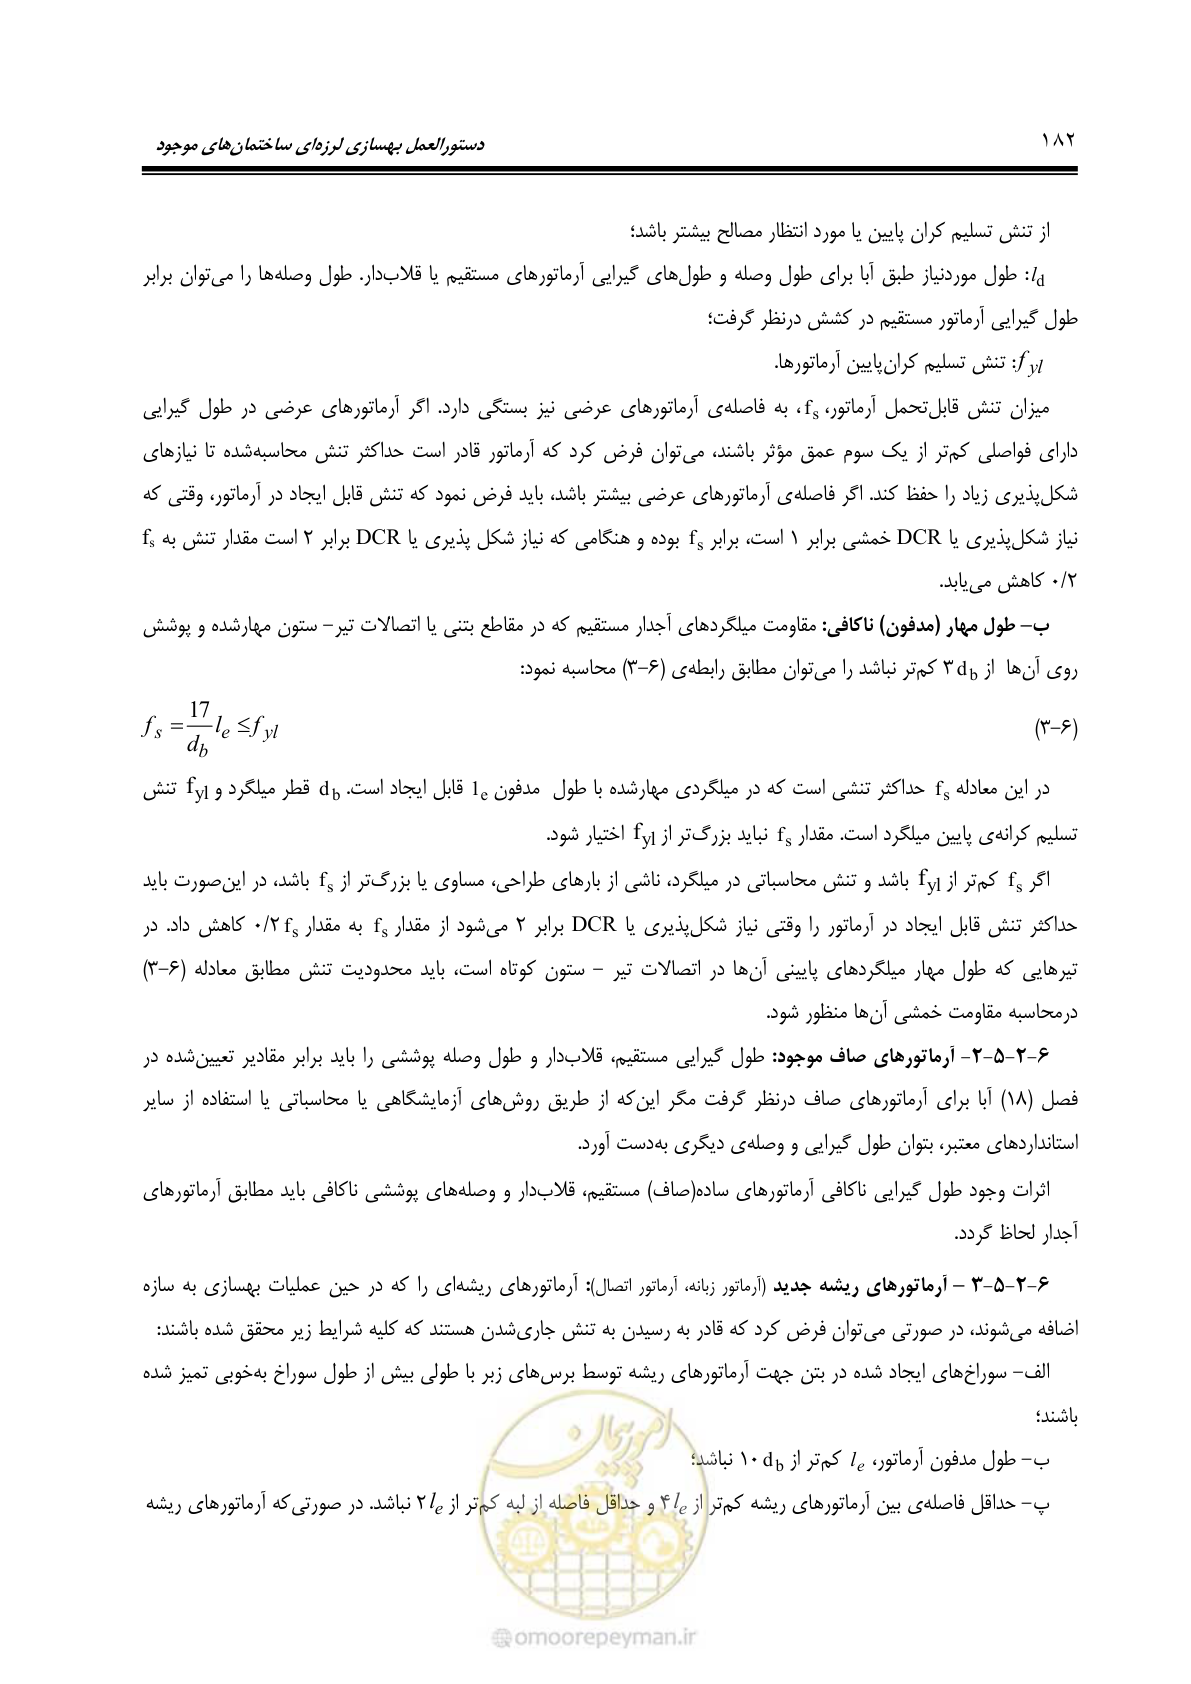 ۱۸۲
دستورالعمل بهسازی لرزه‌ای ساختمان‌های موجود
از تنش تسلیم کران پایین یا مورد انتظار مصالح بیشتر باشد؛
l_d: طول موردنیاز طبق آبا برای طول وصله و طول‌های گیرایی آرماتورهای مستقیم یا قلاب‌دار. طول وصله‌ها را می‌توان برابر
طول گیرایی آرماتور مستقیم در کشش درنظر گرفت؛
f_yl: تنش تسلیم کران‌پایین آرماتورها.
میزان تنش قابل‌تحمل آرماتور، f_s، به فاصله‌ی آرماتورهای عرضی نیز بستگی دارد. اگر آرماتورهای عرضی در طول گیرایی
دارای فواصلی کم‌تر از یک سوم عمق مؤثر باشند، می‌توان فرض کرد که آرماتور قادر است حداکثر تنش محاسبه‌شده تا نیازهای
شکل‌پذیری زیاد را حفظ کند. اگر فاصله‌ی آرماتورهای عرضی بیشتر باشد، باید فرض نمود که تنش قابل ایجاد در آرماتور، وقتی که
نیاز شکل‌پذیری یا DCR خمشی برابر ۱ است، برابر f_s بوده و هنگامی که نیاز شکل پذیری یا DCR برابر ۲ است مقدار تنش به f_s
۰/۲ کاهش می‌یابد.
ب– طول مهار (مدفون) ناکافی: مقاومت میلگردهای آجدار مستقیم که در مقاطع بتنی یا اتصالات تیر– ستون مهارشده و پوشش
روی آن‌ها از ۳d_b کم‌تر نباشد را می‌توان مطابق رابطه‌ی (۶–۳) محاسبه نمود:
(۶–۳) f_s = 17/d_b l_e ≤ f_yl
در این معادله f_s حداکثر تنشی است که در میلگردی مهارشده با طول مدفون l_e قابل ایجاد است. d_b قطر میلگرد و f_yl تنش
تسلیم کرانه‌ی پایین میلگرد است. مقدار f_s نباید بزرگ‌تر از f_yl اختیار شود.
اگر f_s کم‌تر از f_yl باشد و تنش محاسباتی در میلگرد، ناشی از بارهای طراحی، مساوی یا بزرگ‌تر از f_s باشد، در این‌صورت باید
حداکثر تنش قابل ایجاد در آرماتور را وقتی نیاز شکل‌پذیری یا DCR برابر ۲ می‌شود از مقدار f_s به مقدار ۰/۲f_s کاهش داد. در
تیرهایی که طول مهار میلگردهای پایینی آن‌ها در اتصالات تیر – ستون کوتاه است، باید محدودیت تنش مطابق معادله (۶–۳)
درمحاسبه مقاومت خمشی آن‌ها منظور شود.
۶-۲-۵-۲- آرماتورهای صاف موجود: طول گیرایی مستقیم، قلاب‌دار و طول وصله پوششی را باید برابر مقادیر تعیین‌شده در
فصل (۱۸) آبا برای آرماتورهای صاف درنظر گرفت مگر این‌که از طریق روش‌های آزمایشگاهی یا محاسباتی یا استفاده از سایر
استانداردهای معتبر، بتوان طول گیرایی و وصله‌ی دیگری به‌دست آورد.
اثرات وجود طول گیرایی ناکافی آرماتورهای ساده(صاف) مستقیم، قلاب‌دار و وصله‌های پوششی ناکافی باید مطابق آرماتورهای
آجدار لحاظ گردد.
۶-۲-۵-۳ – آرماتورهای ریشه جدید (آرماتور زبانه، آرماتور اتصال): آرماتورهای ریشه‌ای را که در حین عملیات بهسازی به سازه
اضافه می‌شوند، در صورتی می‌توان فرض کرد که قادر به رسیدن به تنش جاری‌شدن هستند که کلیه شرایط زیر محقق شده باشند:
الف– سوراخ‌های ایجاد شده در بتن جهت آرماتورهای ریشه توسط برس‌های زبر با طولی بیش از طول سوراخ به‌خوبی تمیز شده
باشند؛
ب– طول مدفون آرماتور، l_e کم‌تر از ۱۰d_b نباشد؛
پ– حداقل فاصله‌ی بین آرماتورهای ریشه کم‌تر از ۴l_e و حداقل فاصله از لبه کم‌تر از ۲l_e نباشد. در صورتی‌که آرماتورهای ریشه
امور پیمان
@omoorepeyman.ir